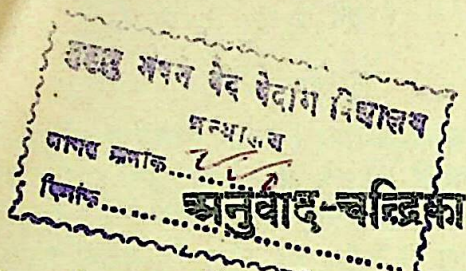 मुमुक्षु भवन वेद वेदांग विद्यालय
ग्रन्थालय
आगत क्रमांक..........
दिनांक..........
अनुवाद-चन्द्रिका